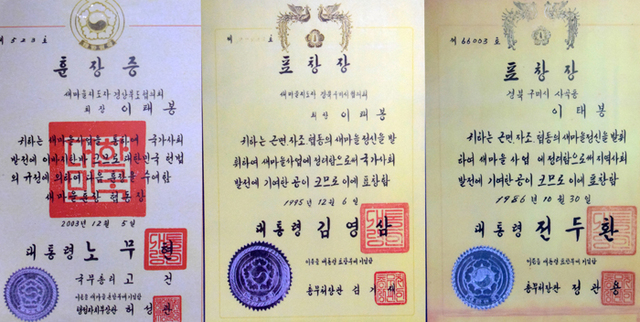 제 523 호
훈장증
새마을지도자 경상북도협의회
회장 이태봉
귀하는 새마을사업을 통하여 국가사회
발전에 이바지한바 크므로 대한민국 헌법
의 규정에 의하여 다음 훈장을 수여함
새마을훈장 협동장
2003년 12월 5일
대통령 노무현
국무총리 고건
이 증을 새마을훈장부에 기입함
행정자치부장관 허성관
제 호
표창장
새마을지도자 경북구미시협의회
회장 이태봉
귀하는 근면, 자조, 협동의 새마을정신을 발
휘하여 새마을사업에 정려함으로써 국가사회
발전에 기여한 공이 크므로 이에 표창함
1995년 12월 6일
대통령 김영삼
이 증을 대통령 표창부에 기입함
총무처장관 김기재
제 66003 호
표창장
경북 구미시 사곡동
이태봉
귀하는 근면, 자조, 협동의 새마을정신을 발휘
하여 새마을 사업에 정려함으로써 지역사회
발전에 기여한 공이 크므로 이에 표창함
1986년 10월 30일
대통령 전두환
이 증을 대통령 표창부에 기입함
총무처장관 정관용